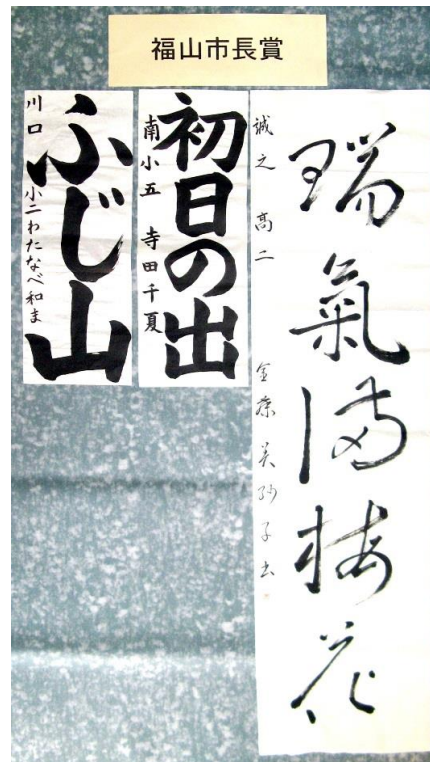 福山市長賞
瑞氣満梅花
誠之 高二 美砂子書
初日の出
南小五 寺田千夏
ふじ山
川口 小二わたなべ和ま